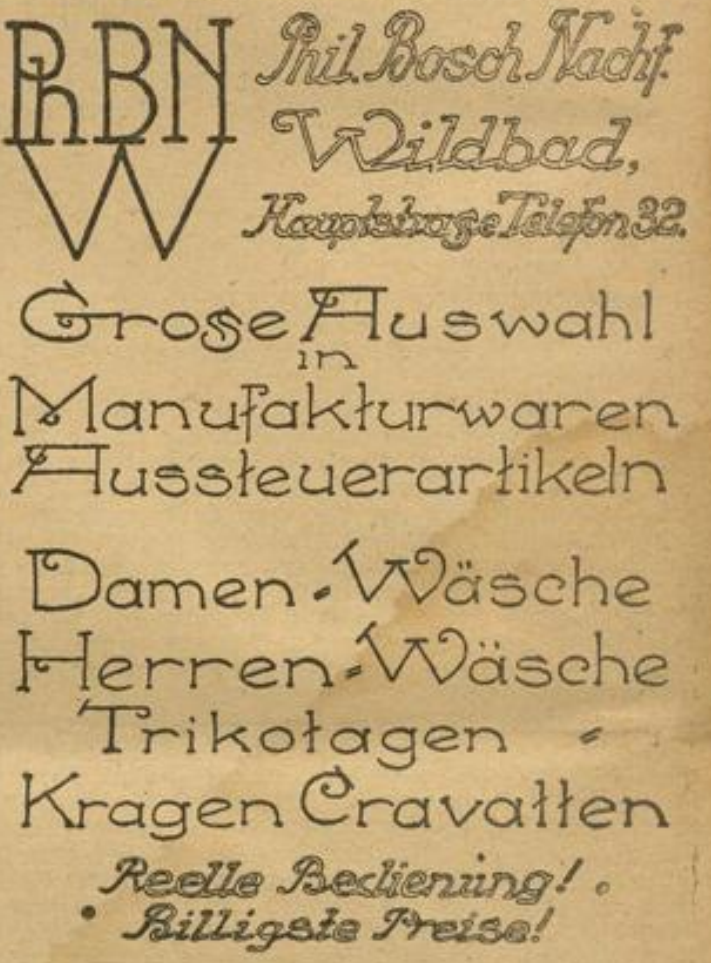 PhBN
W
Phil. Bosch Nachf.
Wildbad,
Hauptstrasse Telefon 32.
Grosse Auswahl
in
Manufakturwaren
Aussteuerartikeln
Damen-Wäsche
Herren-Wäsche
Trikotagen -
Kragen Cravatten
Reelle Bedienung!
Billigste Preise!